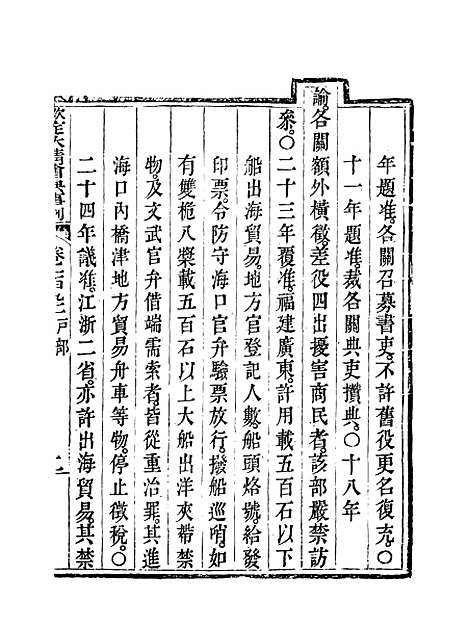 年題准。各關召募書吏。不許舊役更名復充。○
十一年題准。裁各關典吏攢典。○十八年
諭。各關額外橫徵。差役四出擾害商民者。該部嚴禁訪
參。○二十三年覆准。福建廣東。許用載五百石以下
船出海貿易。地方官登記人數。船頭烙號。給發
印票。令防守海口官弁驗票放行。撥船巡哨。如
有雙桅八槳載五百石以上大船出洋夾帶禁
物。及文武官弁借端需索者。皆從重治罪。其進
海口內橋津地方貿易舟車等物。停止徵稅。○
二十四年議准。江浙二省。亦許出海貿易。其禁
欽定大清會典事例 戶部